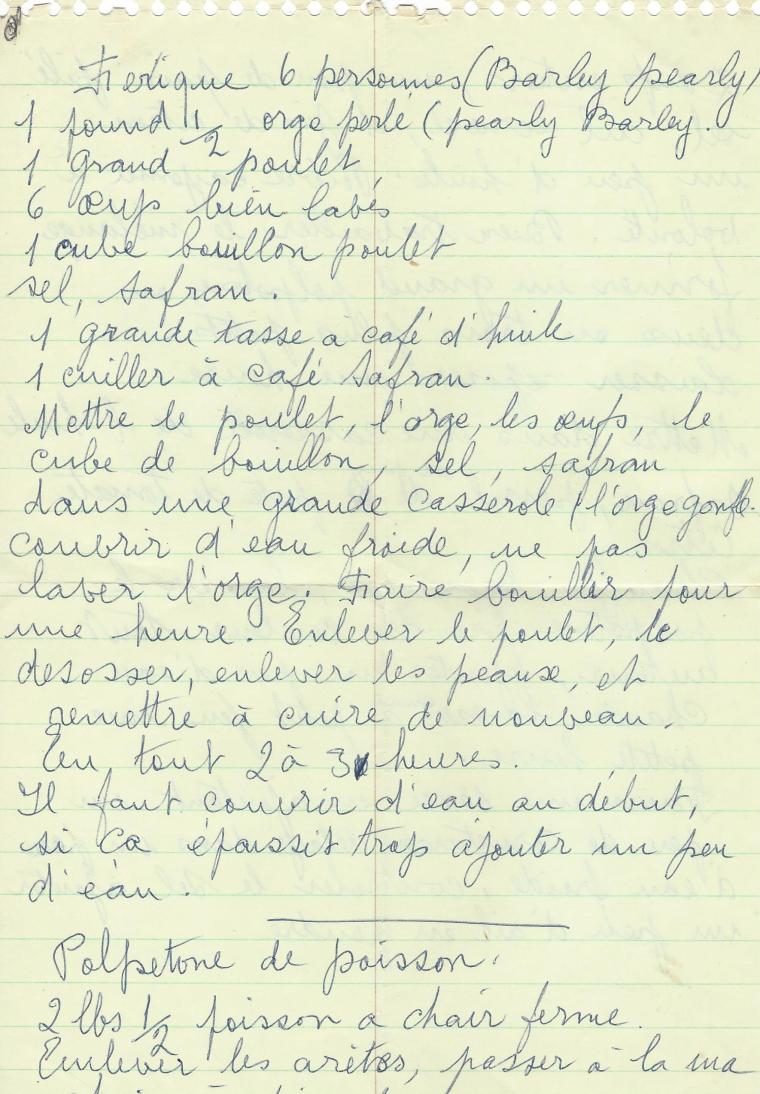 Ferique 6 personnes (Barley pearly)
1 pound 1/2 orge perlé (pearly Barley.
1 grand poulet,
6 œufs bien lavés
1 cube bouillon poulet
sel, safran.
1 grande tasse a café d'huile
1 cuiller à café safran.
Mettre le poulet, l'orge, les œufs, le
cube de bouillon, sel, safran
dans une grande casserole (l'orge gonfle.
Couvrir d'eau froide, ne pas
laver l'orge. Faire bouillir pour
une heure. Enlever le poulet, le
desosser, enlever les peaux, et
remettre à cuire de nouveau.
En tout 2 à 3 heures.
Il faut couvrir d'eau au début,
si ça épaissit trop ajouter un peu
d'eau.
Polpetone de poisson.
2 lbs 1/2 poisson a chair ferme.
Enlever les arêtes, passer à la ma